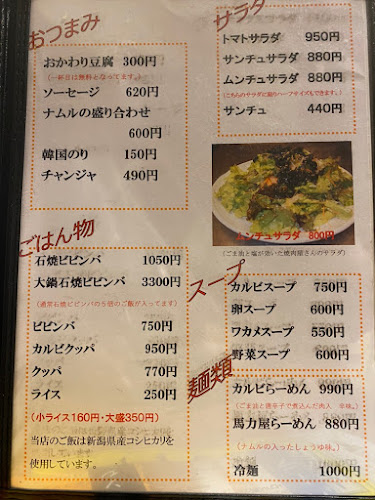 おつまみ
おかわり豆腐 300円
(一杯目は無料となってます。)
ソーセージ 620円
ナムルの盛り合わせ
600円
韓国のり 150円
チャンジャ 490円
ごはん物
石焼ビビンバ 1050円
大鍋石焼ビビンバ 3300円
ビビンバ 750円
カルビクッパ 950円
クッパ 770円
ライス 250円
(小ライス160円・大盛350円)
当店のご飯は新潟県産コシヒカリを
使用しています。
サラダ
トマトサラダ 950円
サンチュサラダ 880円
ムンチュサラダ 880円
(こちらのサラダに限りハーフサイズもできます。)
サンチュ 440円
ムンチュサラダ 800円
(ごま油と塩が効いた焼肉屋さんのサラダ)
スープ
カルビスープ 750円
卵スープ 600円
ワカメスープ 550円
野菜スープ 600円
麺類
カルビらーめん 990円
(ごま油と唐辛子で煮込んだ肉入 辛味。)
馬力屋らーめん 880円
(ナムルの入ったしょうゆ味。)
冷麺 1000円